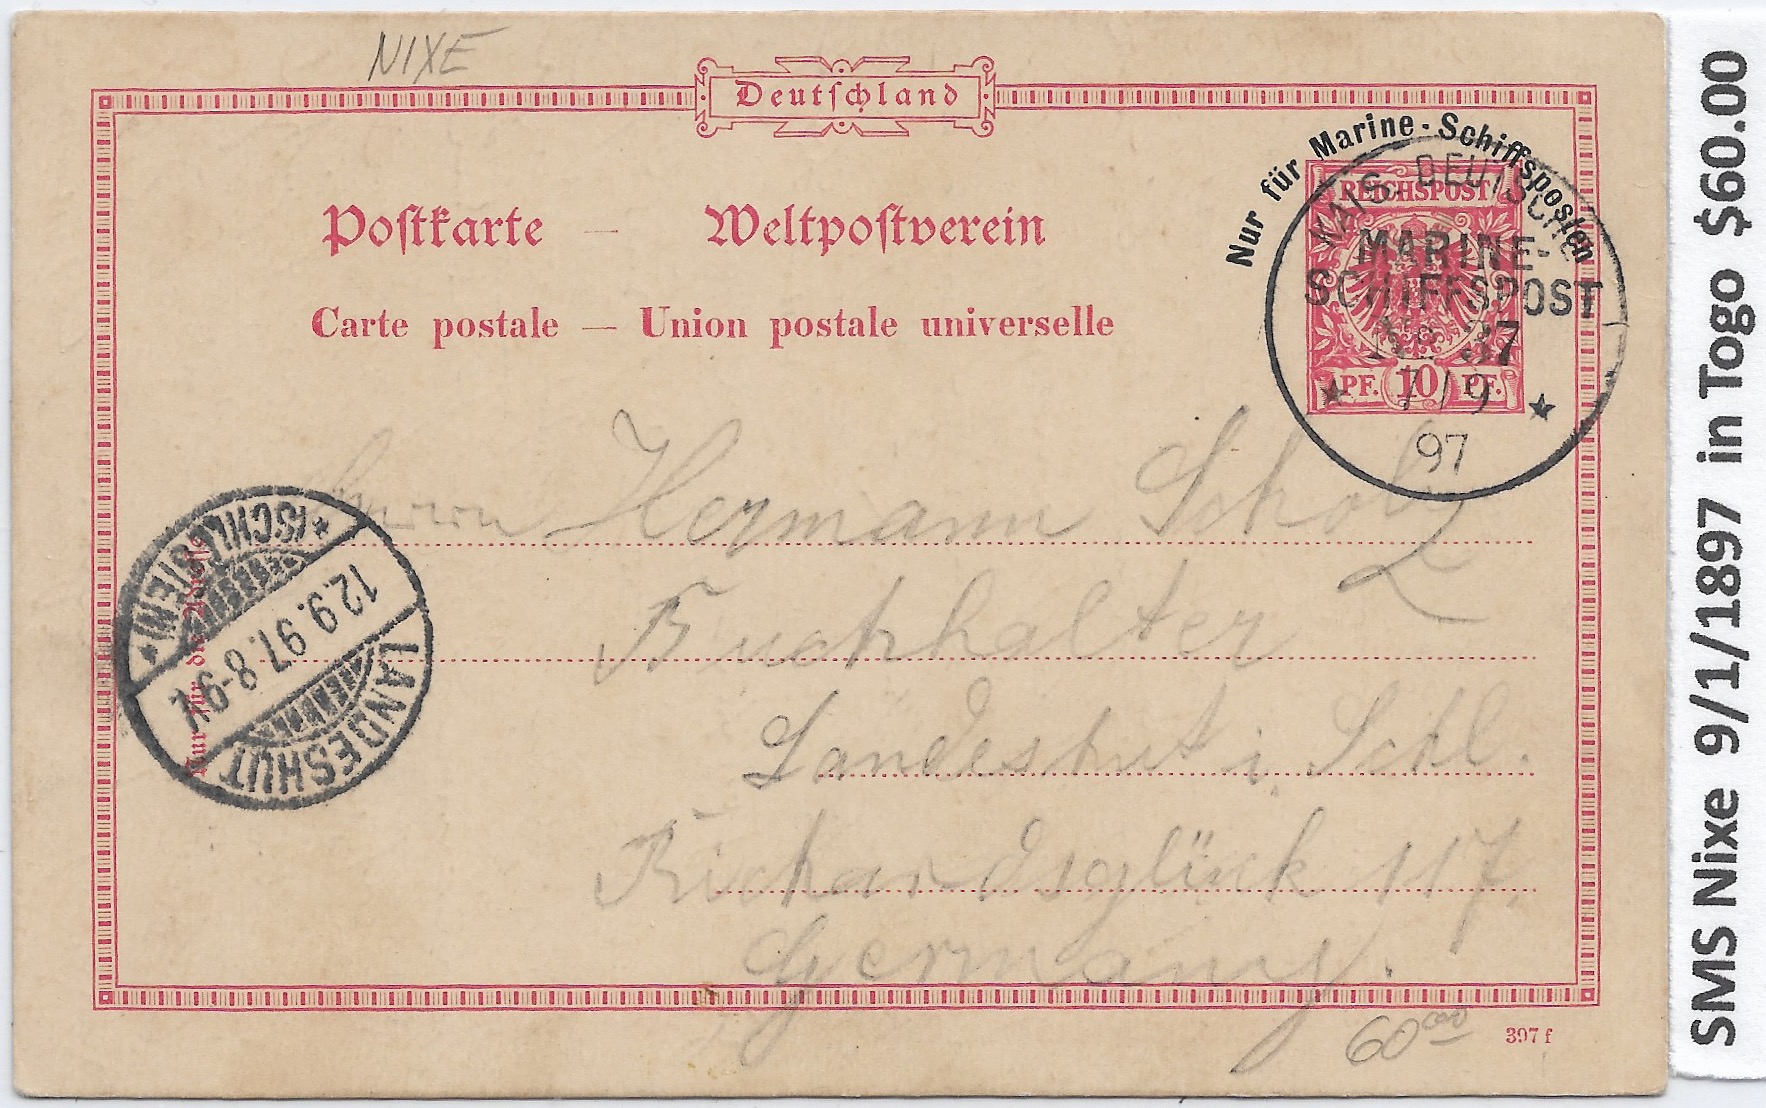 NIXE
Deutschland
Nur für Marine-Schiffsposten
REICHSPOST
PF. 10 PF.
KAIS. DEUTSCHE
MARINE-
SCHIFFSPOST
No 37
7/9
97
Postkarte – Weltpostverein
Carte postale – Union postale universelle
Herrn Hermann Scholz
Buchhalter
Landeshut i. Schl.
Richardsglück 117.
Germany.
LANDESHUT
12.9.97.8-9V.
*(SCHLESIEN)*
Nur für die
60.00
397 f
SMS Nixe 9/1/1897 in Togo $60.00